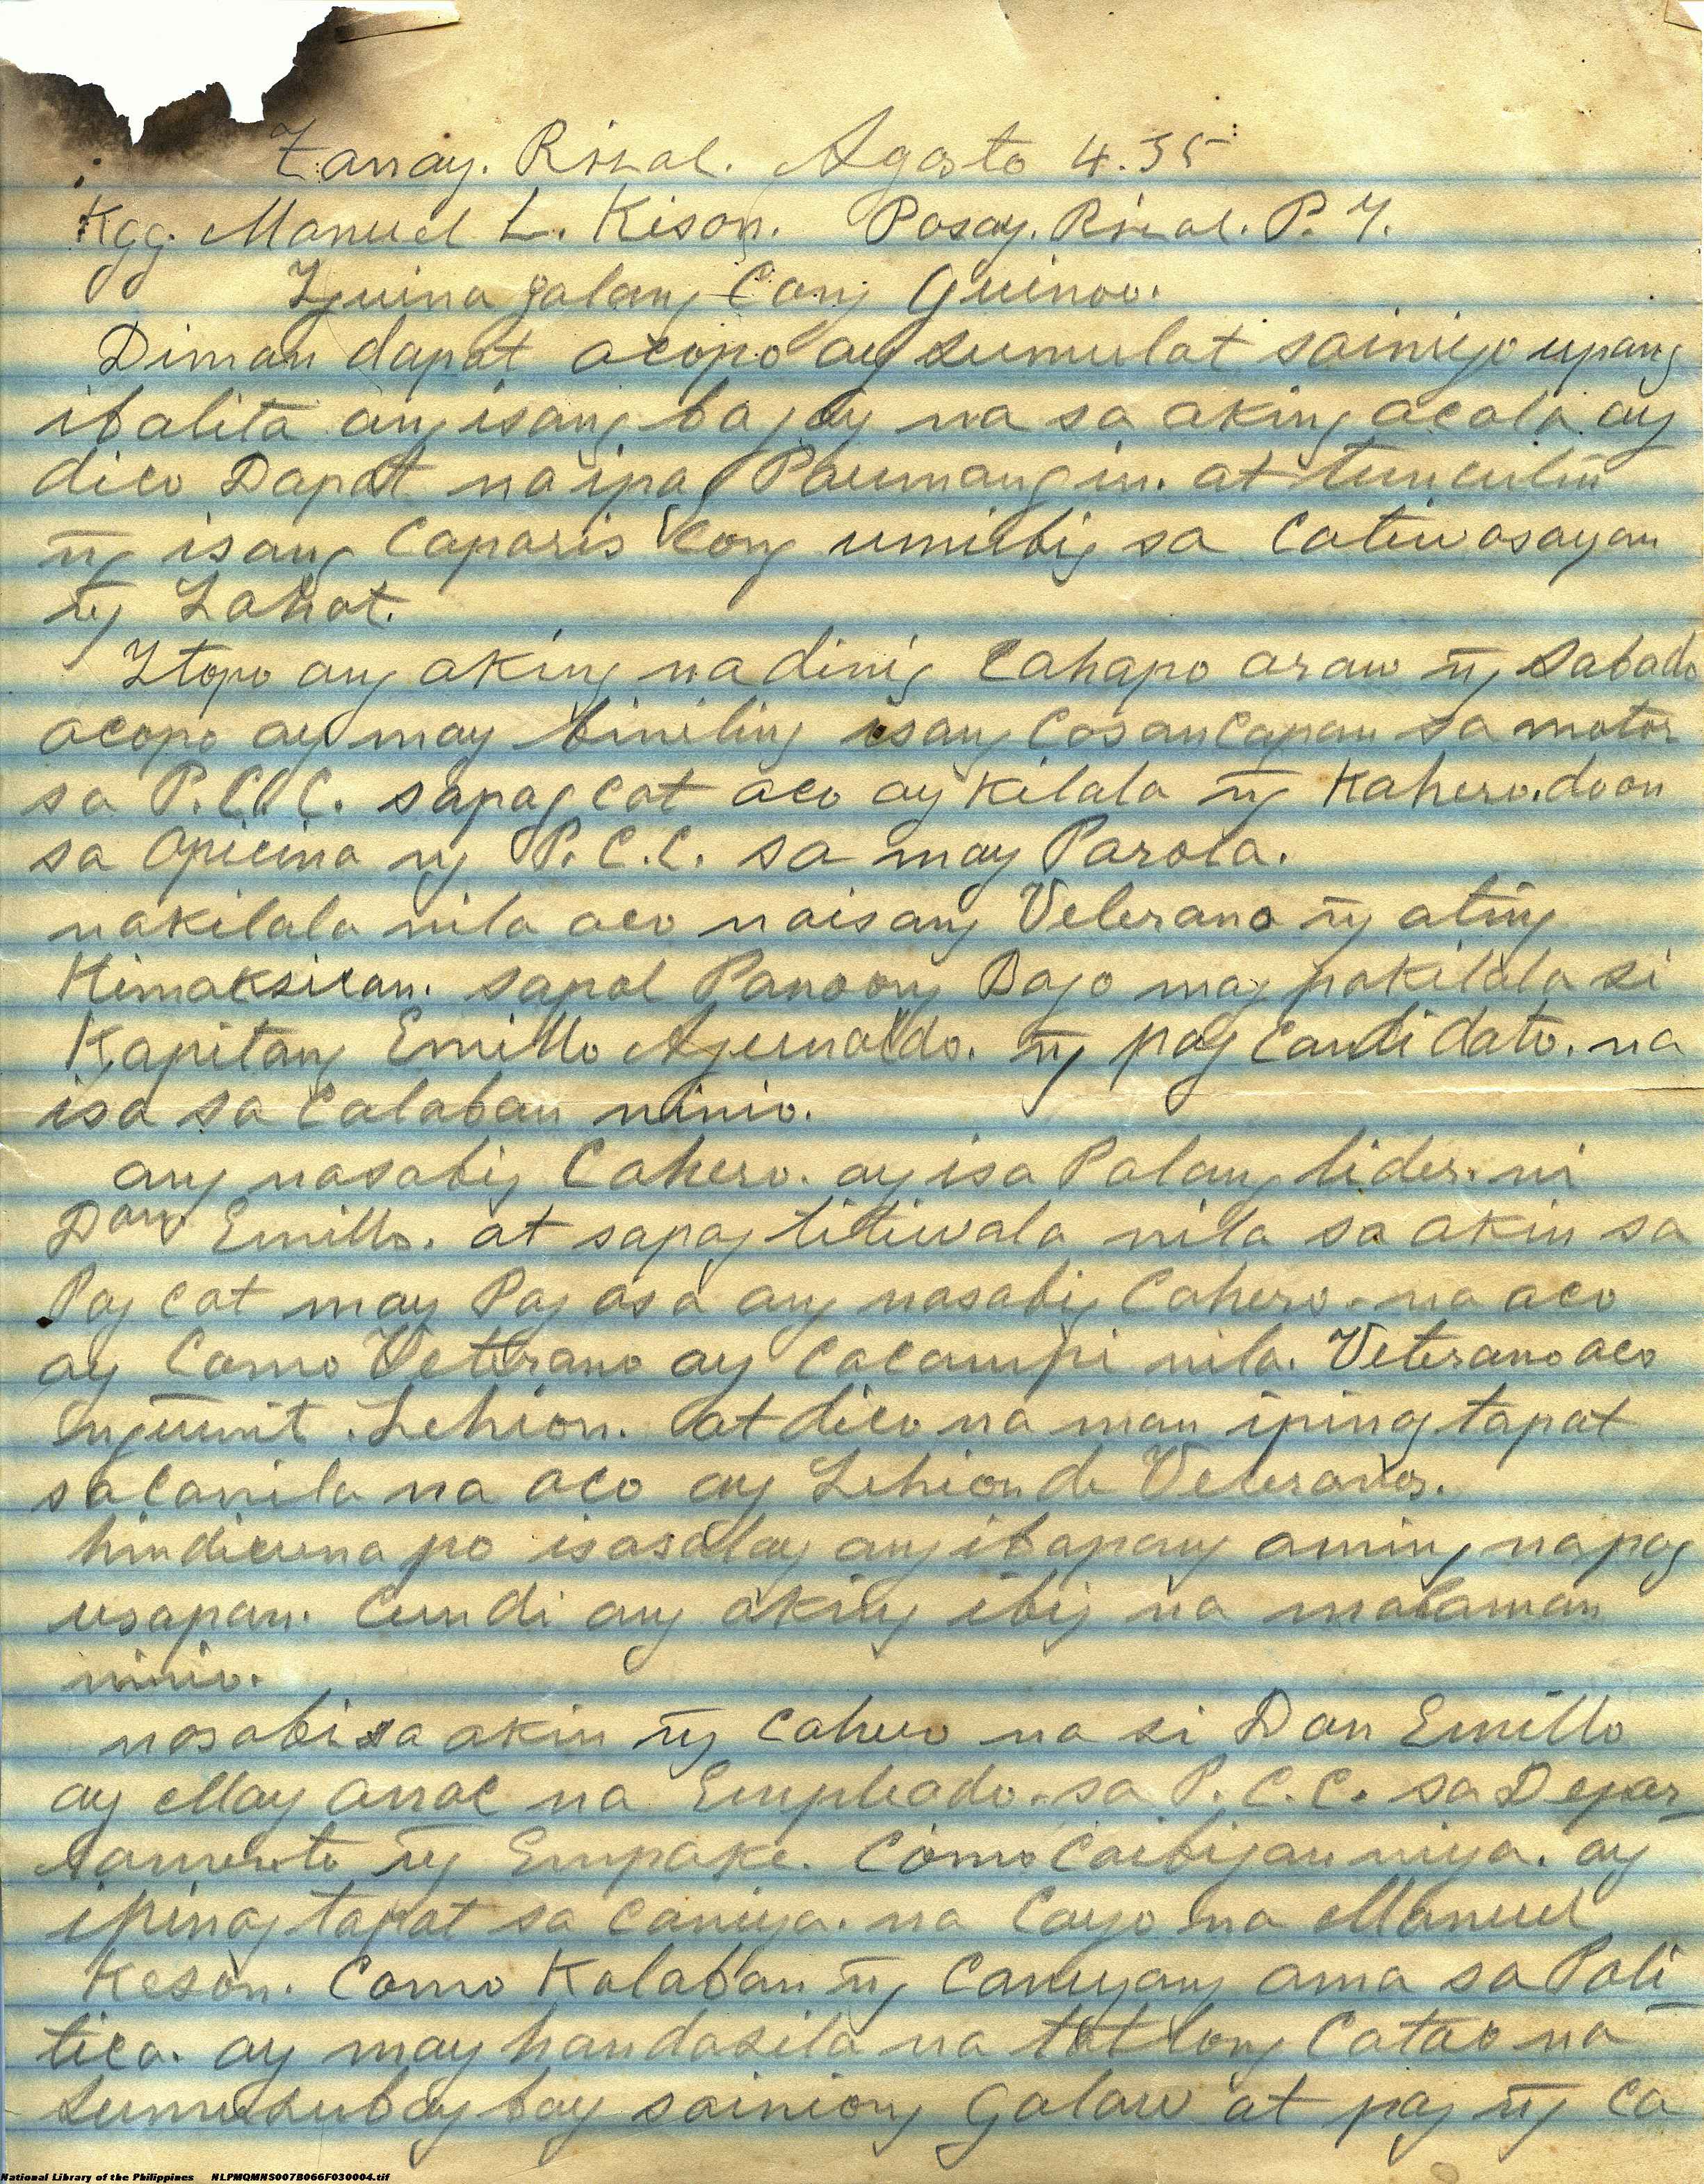 Tanay. Rizal. Agosto 4.35
Kgg. Manuel L. Kison. Pasay. Rizal. P. I.
Iguinagalang Cong Guinoo.
Diman dapat acopo ay sumulat sainijo upang
ibalita ang isang bagay na sa aking acala ay
dico Dapat na ipag Paumangin. at tunculin
ng isang Caparis Cong umiibig sa Catiwasayan
ng Lahat.
Itopo ang aking nadinig Cahapo araw ng Sabado
acopo ay may biniling isang Casancapan sa motor
sa P.C.C. sapagcat aco ay kilala ng Kahero. doon
sa Opicina ng P.C.C. sa may Parola.
nakilala nila aco naisang Veterano ng ating
Himaksican. sapol Panoong Bago mag pakilala si
Kapitang Emillo Agunaldo. ng pag Candidato. na
isa sa Calaban ninio.
ang nasabig Cahero. ay isa Palang lider. ni
Dan Emillo. at sapag titiwala nila sa akin sa
Pag cat may Pag asa ang nasabig Cahero. na aco
ay Como Veterano ay Cacampi nila. Veterano aco
ngunit. Lehion. at dico na man ipinag tapat
sa Canila na aco ay Lehion de Veteranos.
hindicuna po isasalay ang ibapang aming napag
usapan. Cundi ang aking ibig na malaman
ninio.
nasabi sa akin ng Cahero na si Dan Emillo
ay May anac na Empleado. sa P.C.C. sa Depar_
tamento ng Empake. Como Caibigan niya. ay
ipinag tapat sa Caniya. na Cayo na Manuel
Keson. Como Kalaban ng Caniyang ama sa Poli_
tica. ay may handasila na tatlong Catao na
Sumusubaybay sainiong Galaw at pag ng Ca
National Library of the Philippines NLPMQMNS007B066F030004.tif